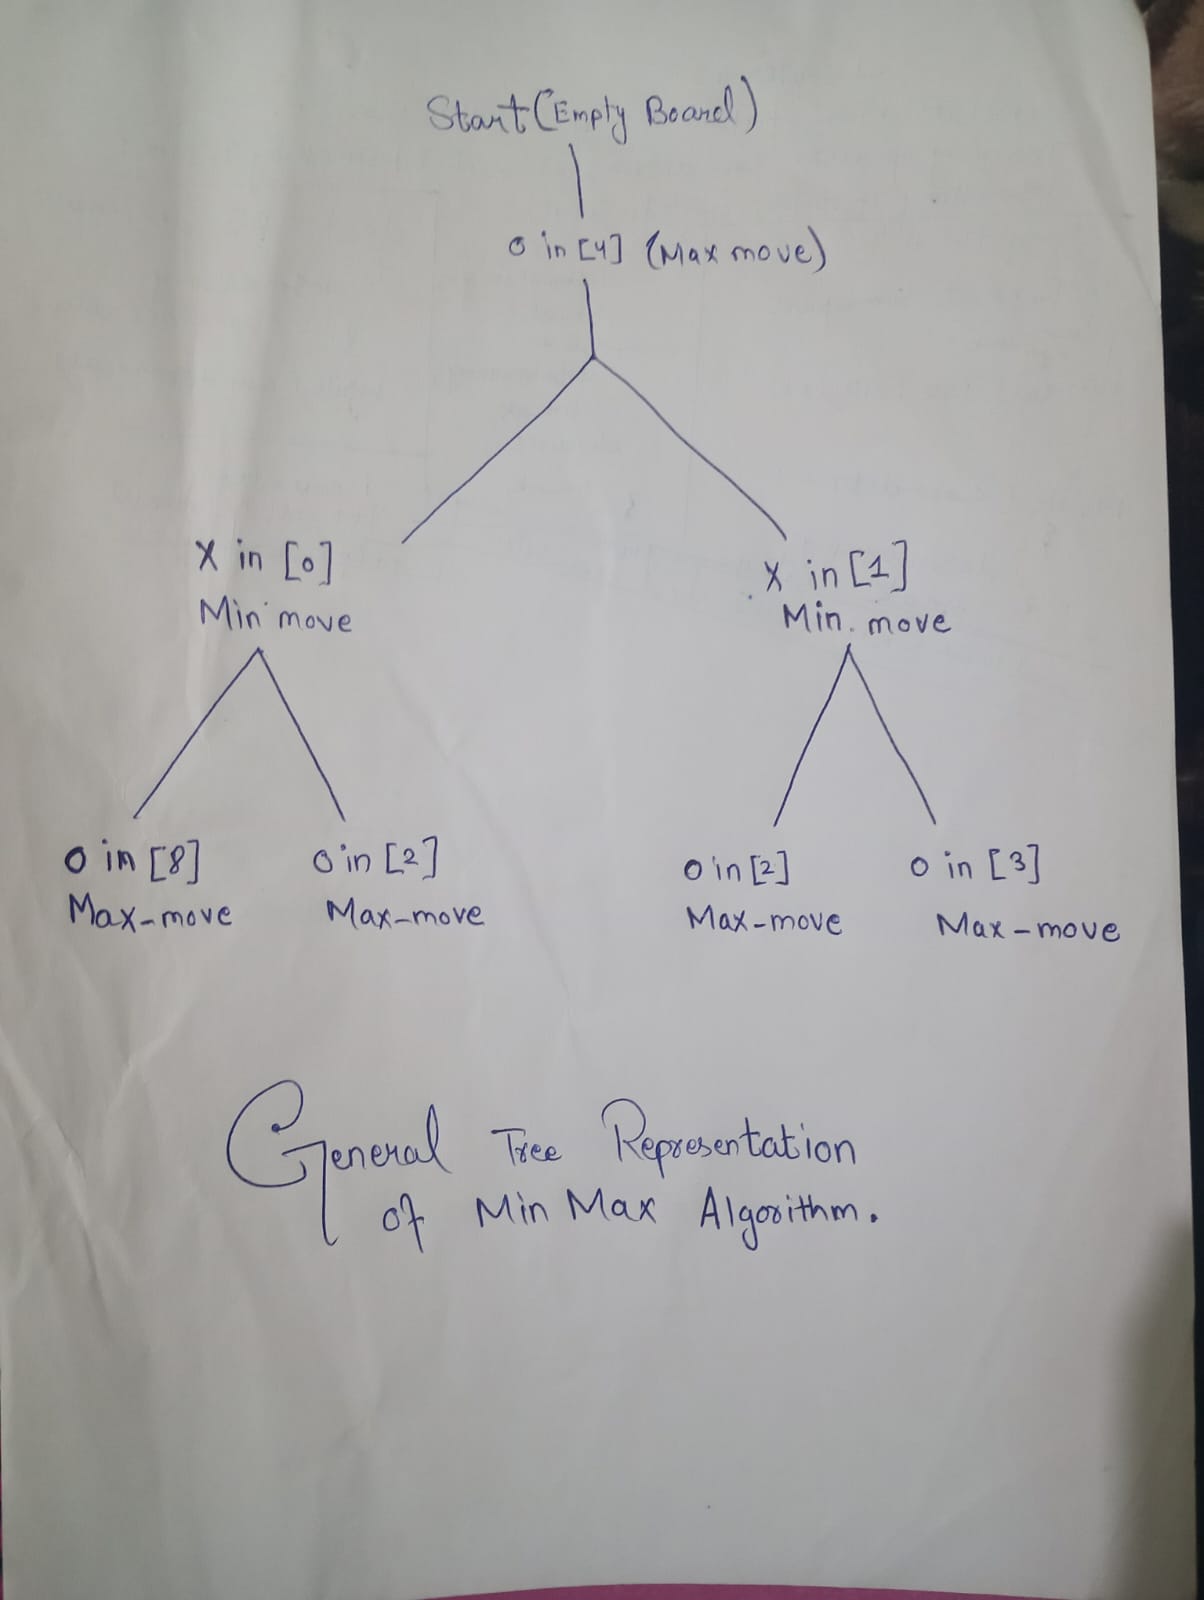 Start (Empty Board)
O in [4] (Max move)
X in [0]
Min move
X in [1]
Min. move
O in [8]
Max-move
O in [2]
Max-move
O in [2]
Max-move
O in [3]
Max-move
General Tree Representation
of Min Max Algorithm.